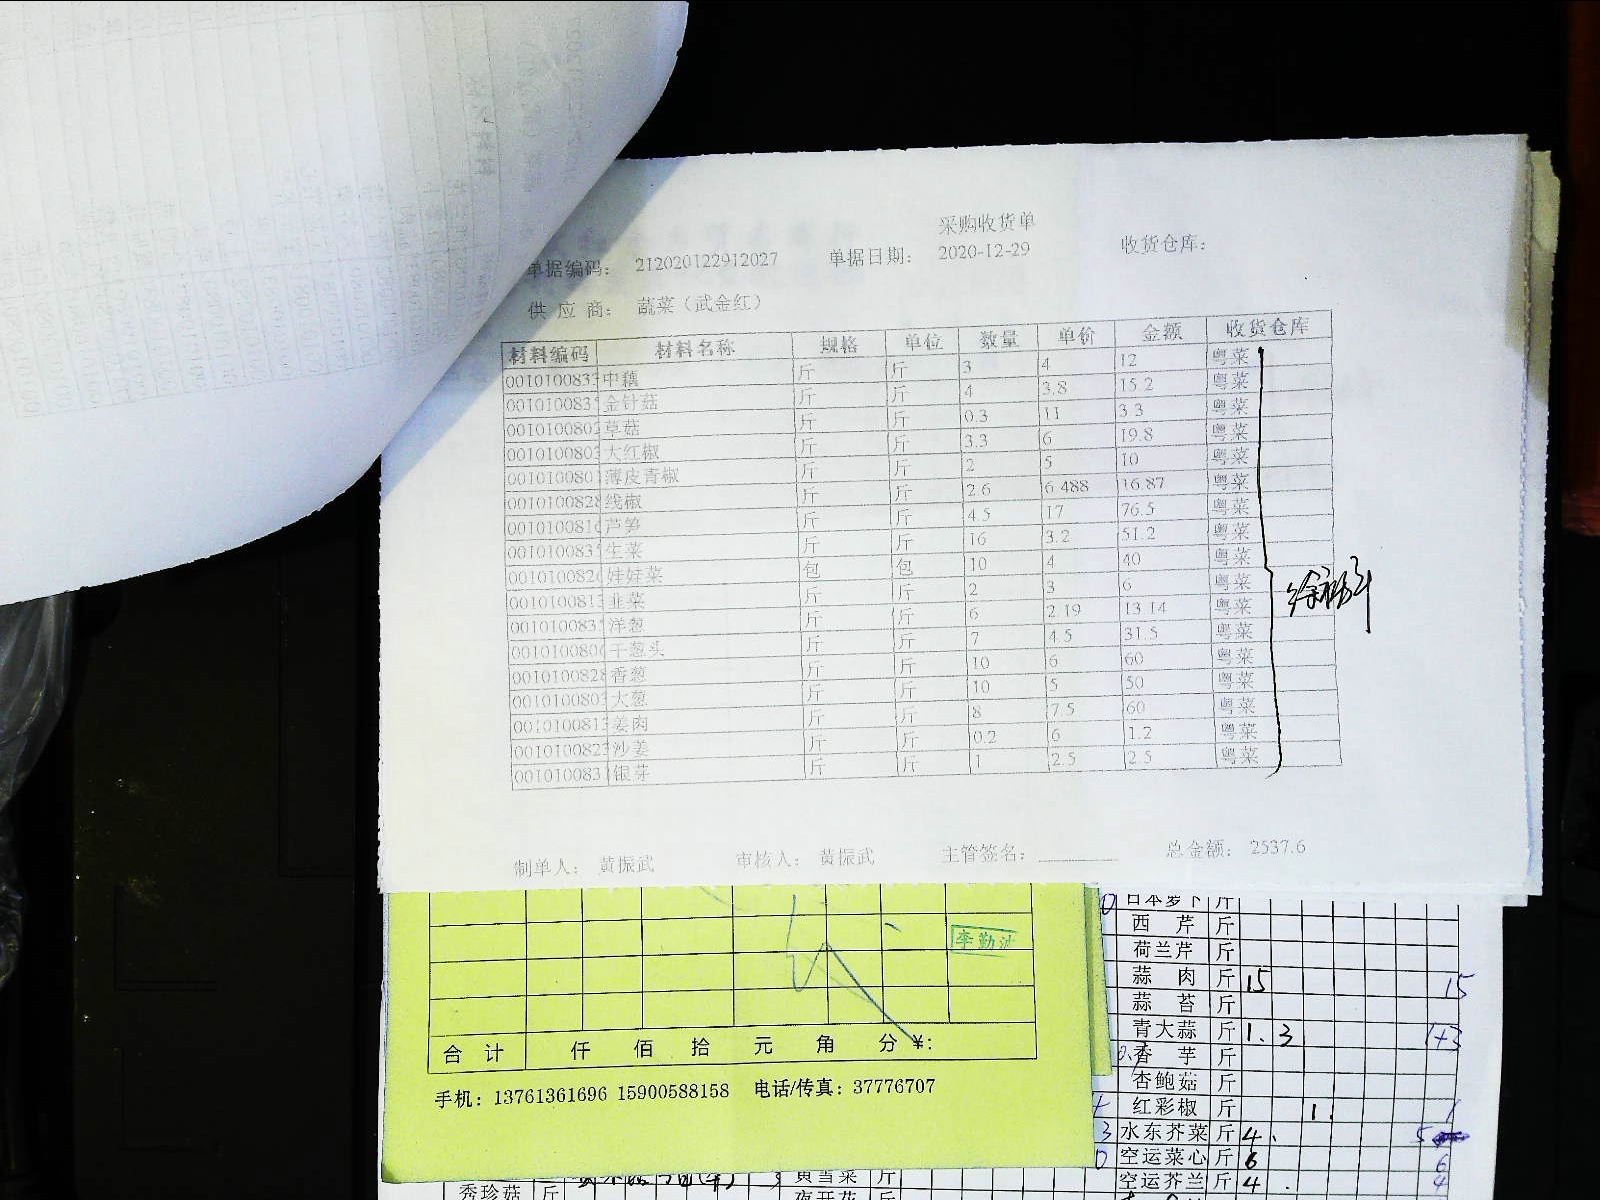 采购收货单
单据编码： 212020122912027 单据日期： 2020-12-29 收货仓库：
供 应 商： 蔬菜（武金红）
材料编码 材料名称 规格 单位 数量 单价 金额 收货仓库
001010083 中藕 斤 斤 3 4 12 粤菜
001010083 金针菇 斤 斤 4 3.8 15.2 粤菜
001010080 草菇 斤 斤 0.3 11 3.3 粤菜
001010080 大红椒 斤 斤 3.3 6 19.8 粤菜
001010080 薄皮青椒 斤 斤 2 5 10 粤菜
001010082 线椒 斤 斤 2.6 6.488 16.87 粤菜
001010081 芦笋 斤 斤 4.5 17 76.5 粤菜
001010083 生菜 斤 斤 16 3.2 51.2 粤菜
001010082 娃娃菜 包 包 10 4 40 粤菜
001010081 韭菜 斤 斤 2 3 6 粤菜
001010083 洋葱 斤 斤 6 2.19 13.14 粤菜
001010080 干葱头 斤 斤 7 4.5 31.5 粤菜
001010082 香葱 斤 斤 10 6 60 粤菜
001010080 大葱 斤 斤 10 5 50 粤菜
001010081 姜肉 斤 斤 8 7.5 60 粤菜
001010082 沙姜 斤 斤 0.2 6 1.2 粤菜
001010083 银芽 斤 斤 1 2.5 2.5 粤菜
制单人： 黄振武 审核人： 黄振武 主管签名： 总金额： 2537.6
李勤
合 计 仟 佰 拾 元 角 分 ¥:
手机：13761361696 15900588158 电话/传真：37776707
日本萝卜 斤
西 芹 斤
荷兰芹 斤
蒜 肉 斤 15 15
蒜 苔 斤
青大蒜 斤 1.3 1+3
香 芋 斤
杏鲍菇 斤
红彩椒 斤 1. 1
水东芥菜 斤 4. 5
空运菜心 斤 6 6
空运芥兰 斤 4. 4
黄当菜 斤
秀珍菇 斤
夜开花 斤